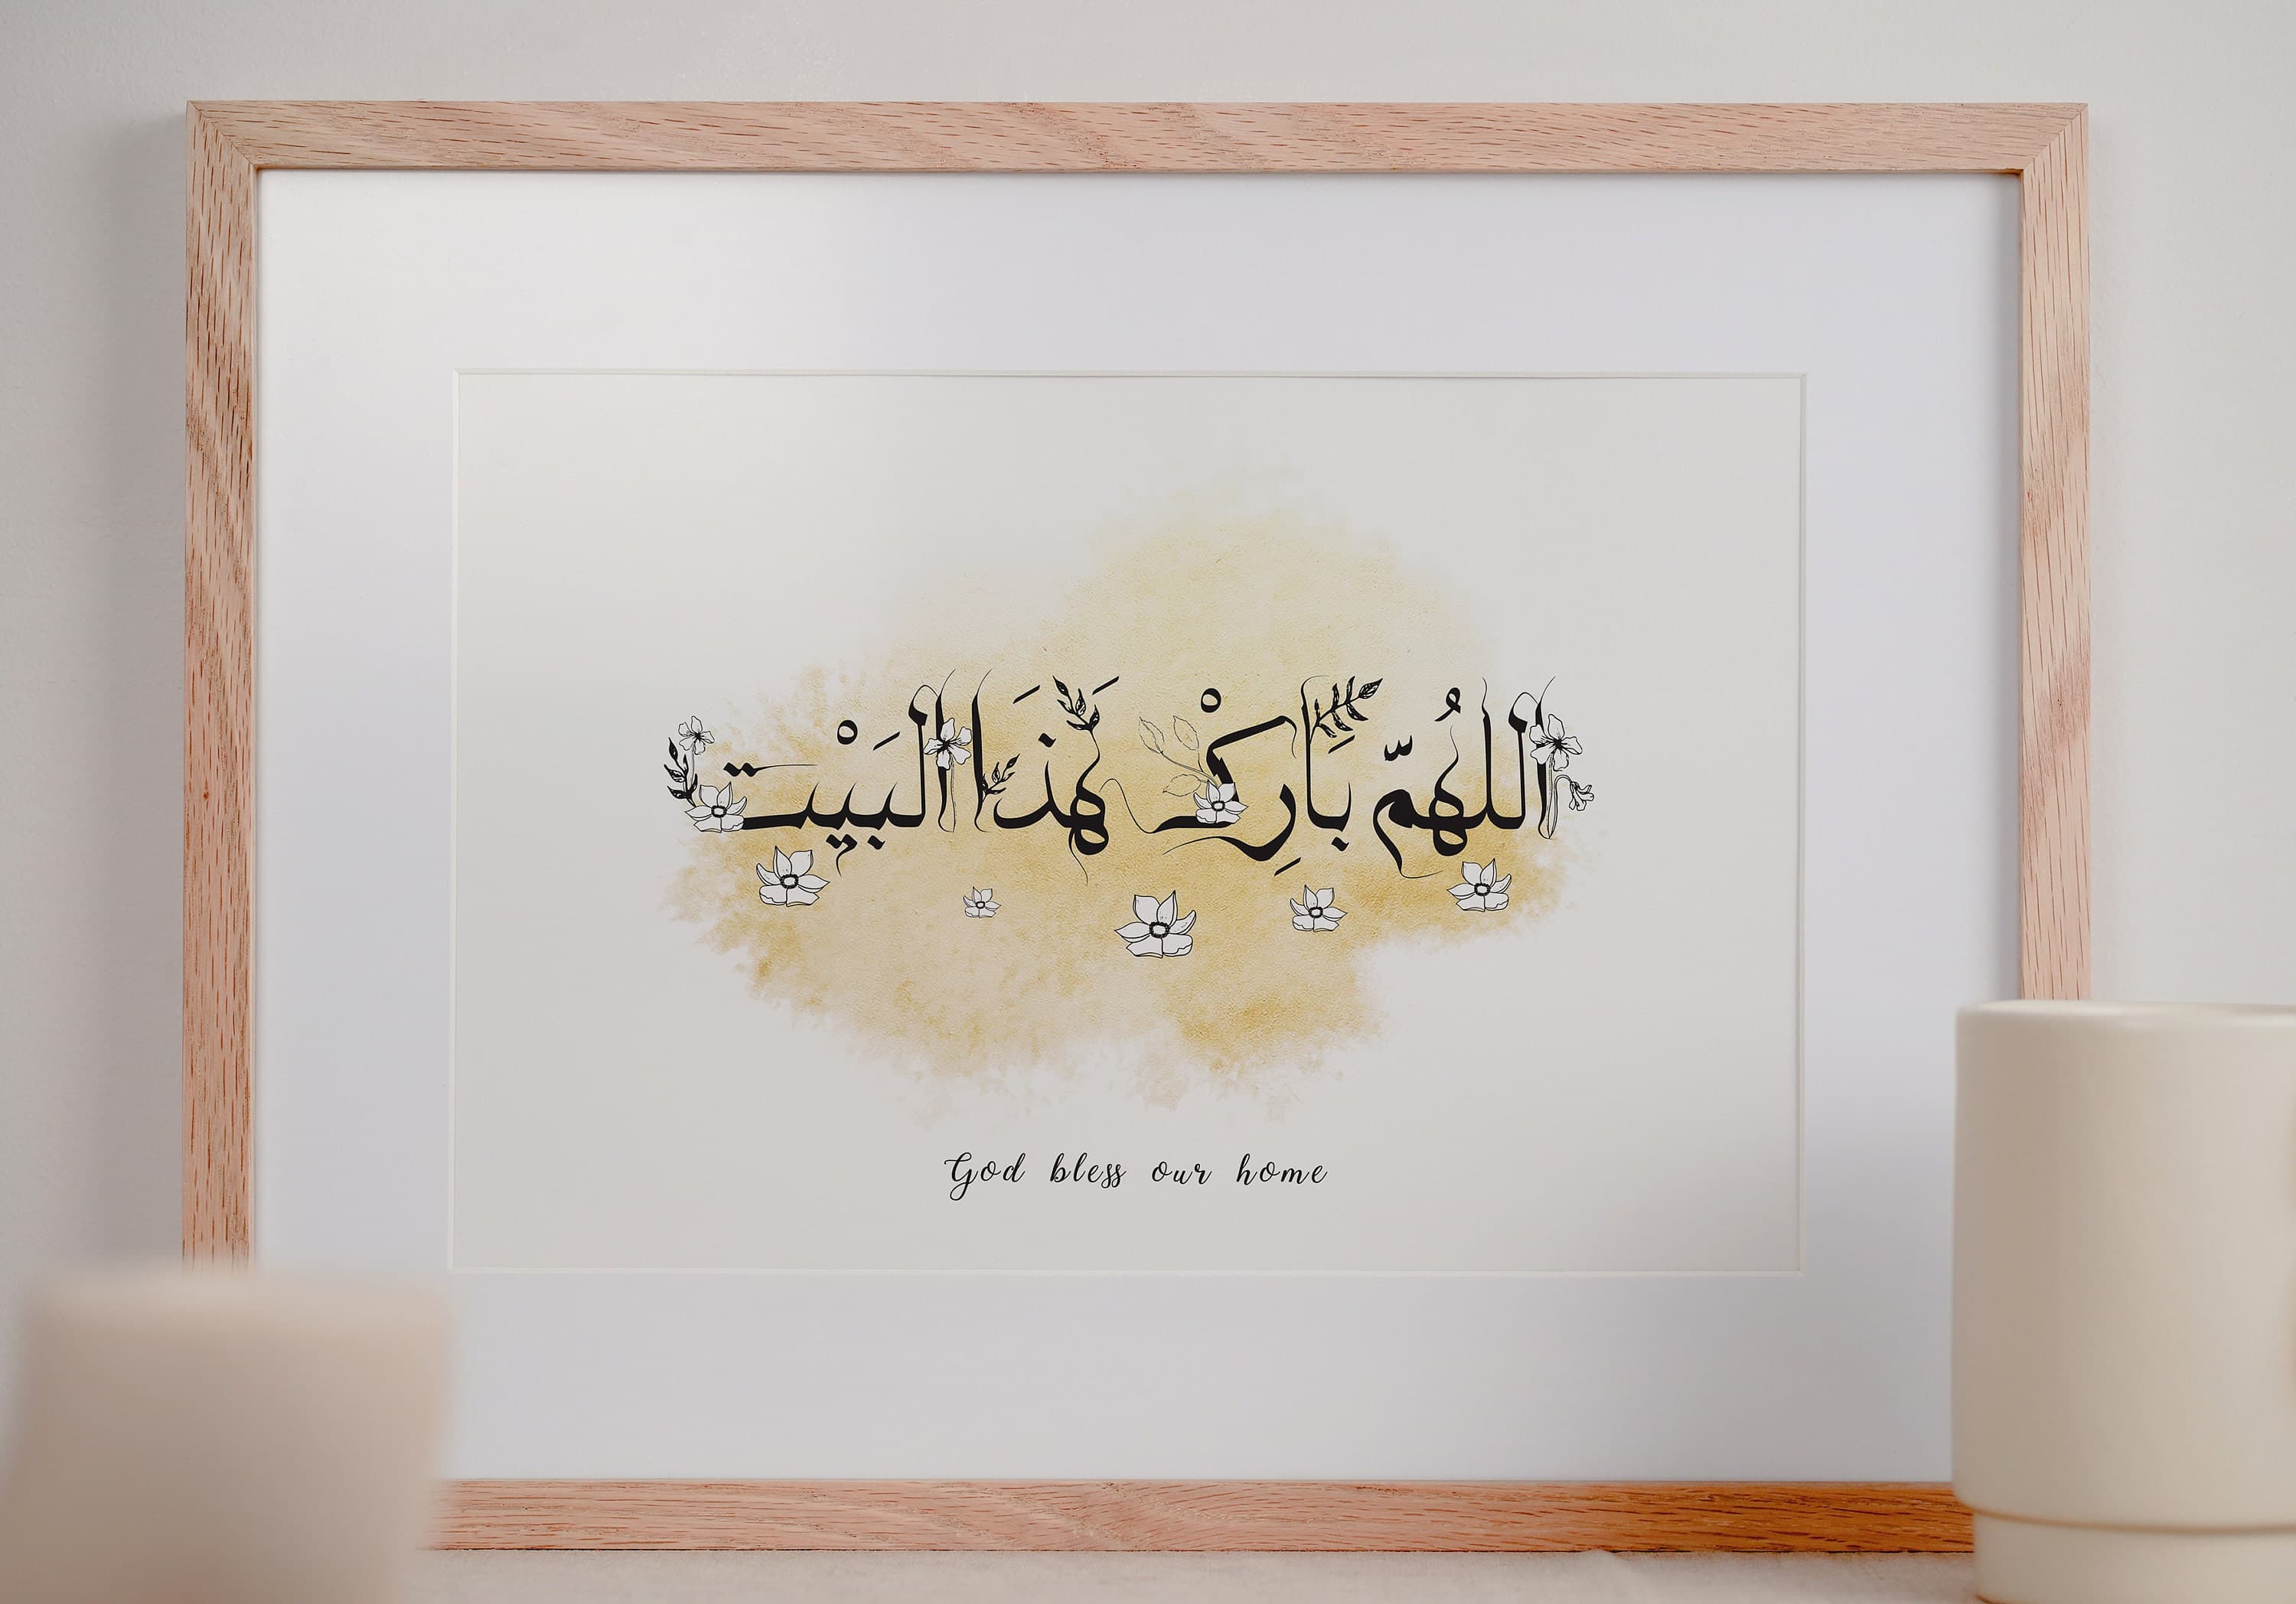 اللهُمّ بَارِكْ هٰذَا البَيْت
God bless our home